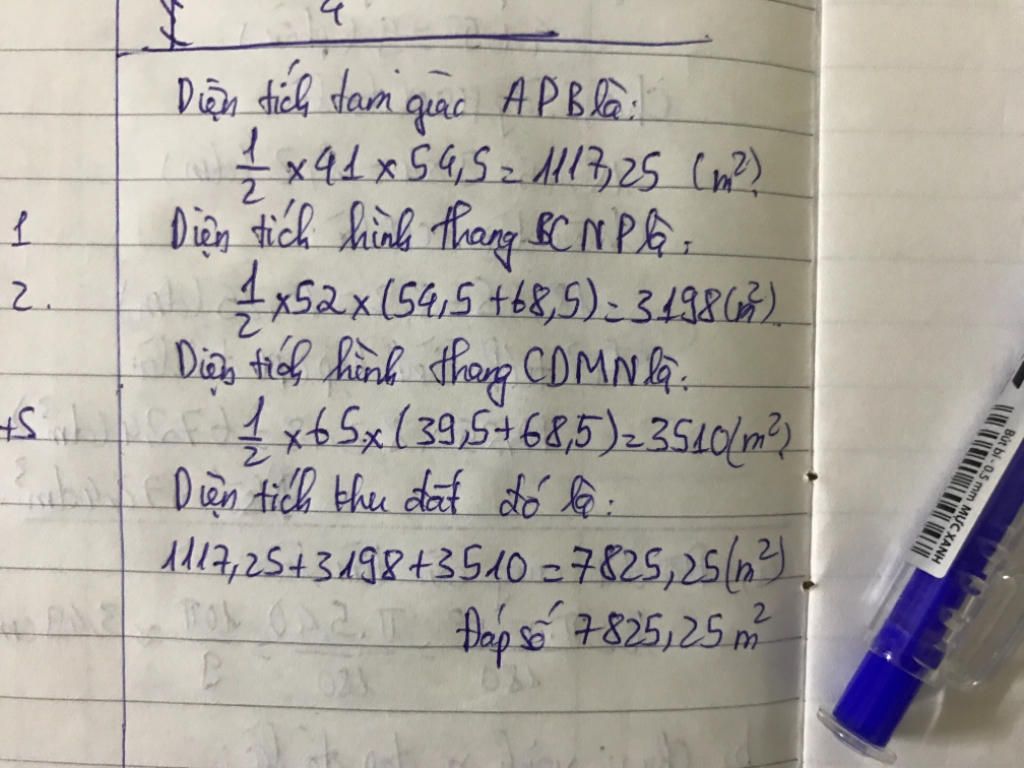 4
Diện tích tam giác APB là:
1/2 × 41 × 54,5 = 1117,25 (m²)
1
Diện tích hình thang BCNP là:
2.
1/2 × 52 × (54,5 + 68,5) = 3198 (m²)
Diện tích hình thang CDMN là:
+5
1/2 × 65 × (39,5 + 68,5) = 3510 (m²)
Diện tích khu đất đó là:
1117,25 + 3198 + 3510 = 7825,25 (m²)
Đáp số 7825,25 m²
Bút bi - 0,5 mm MỰC XANH